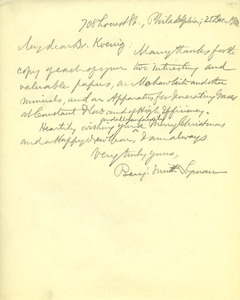 708 Locust St., Philadelphia, 25 Dec.,
My dear Dr. Koenig
Many thanks for the
copy of each of your two interesting and
valuable papers, on Mohawkite and other
minerals, and on Apparatus for Generating Gases
at Constant Flow and of High Efficiency.
Heartily wishing you a Merry Christmas
and a Happy New Year, I am always
Very truly yours,
Benj. Smith Lyman